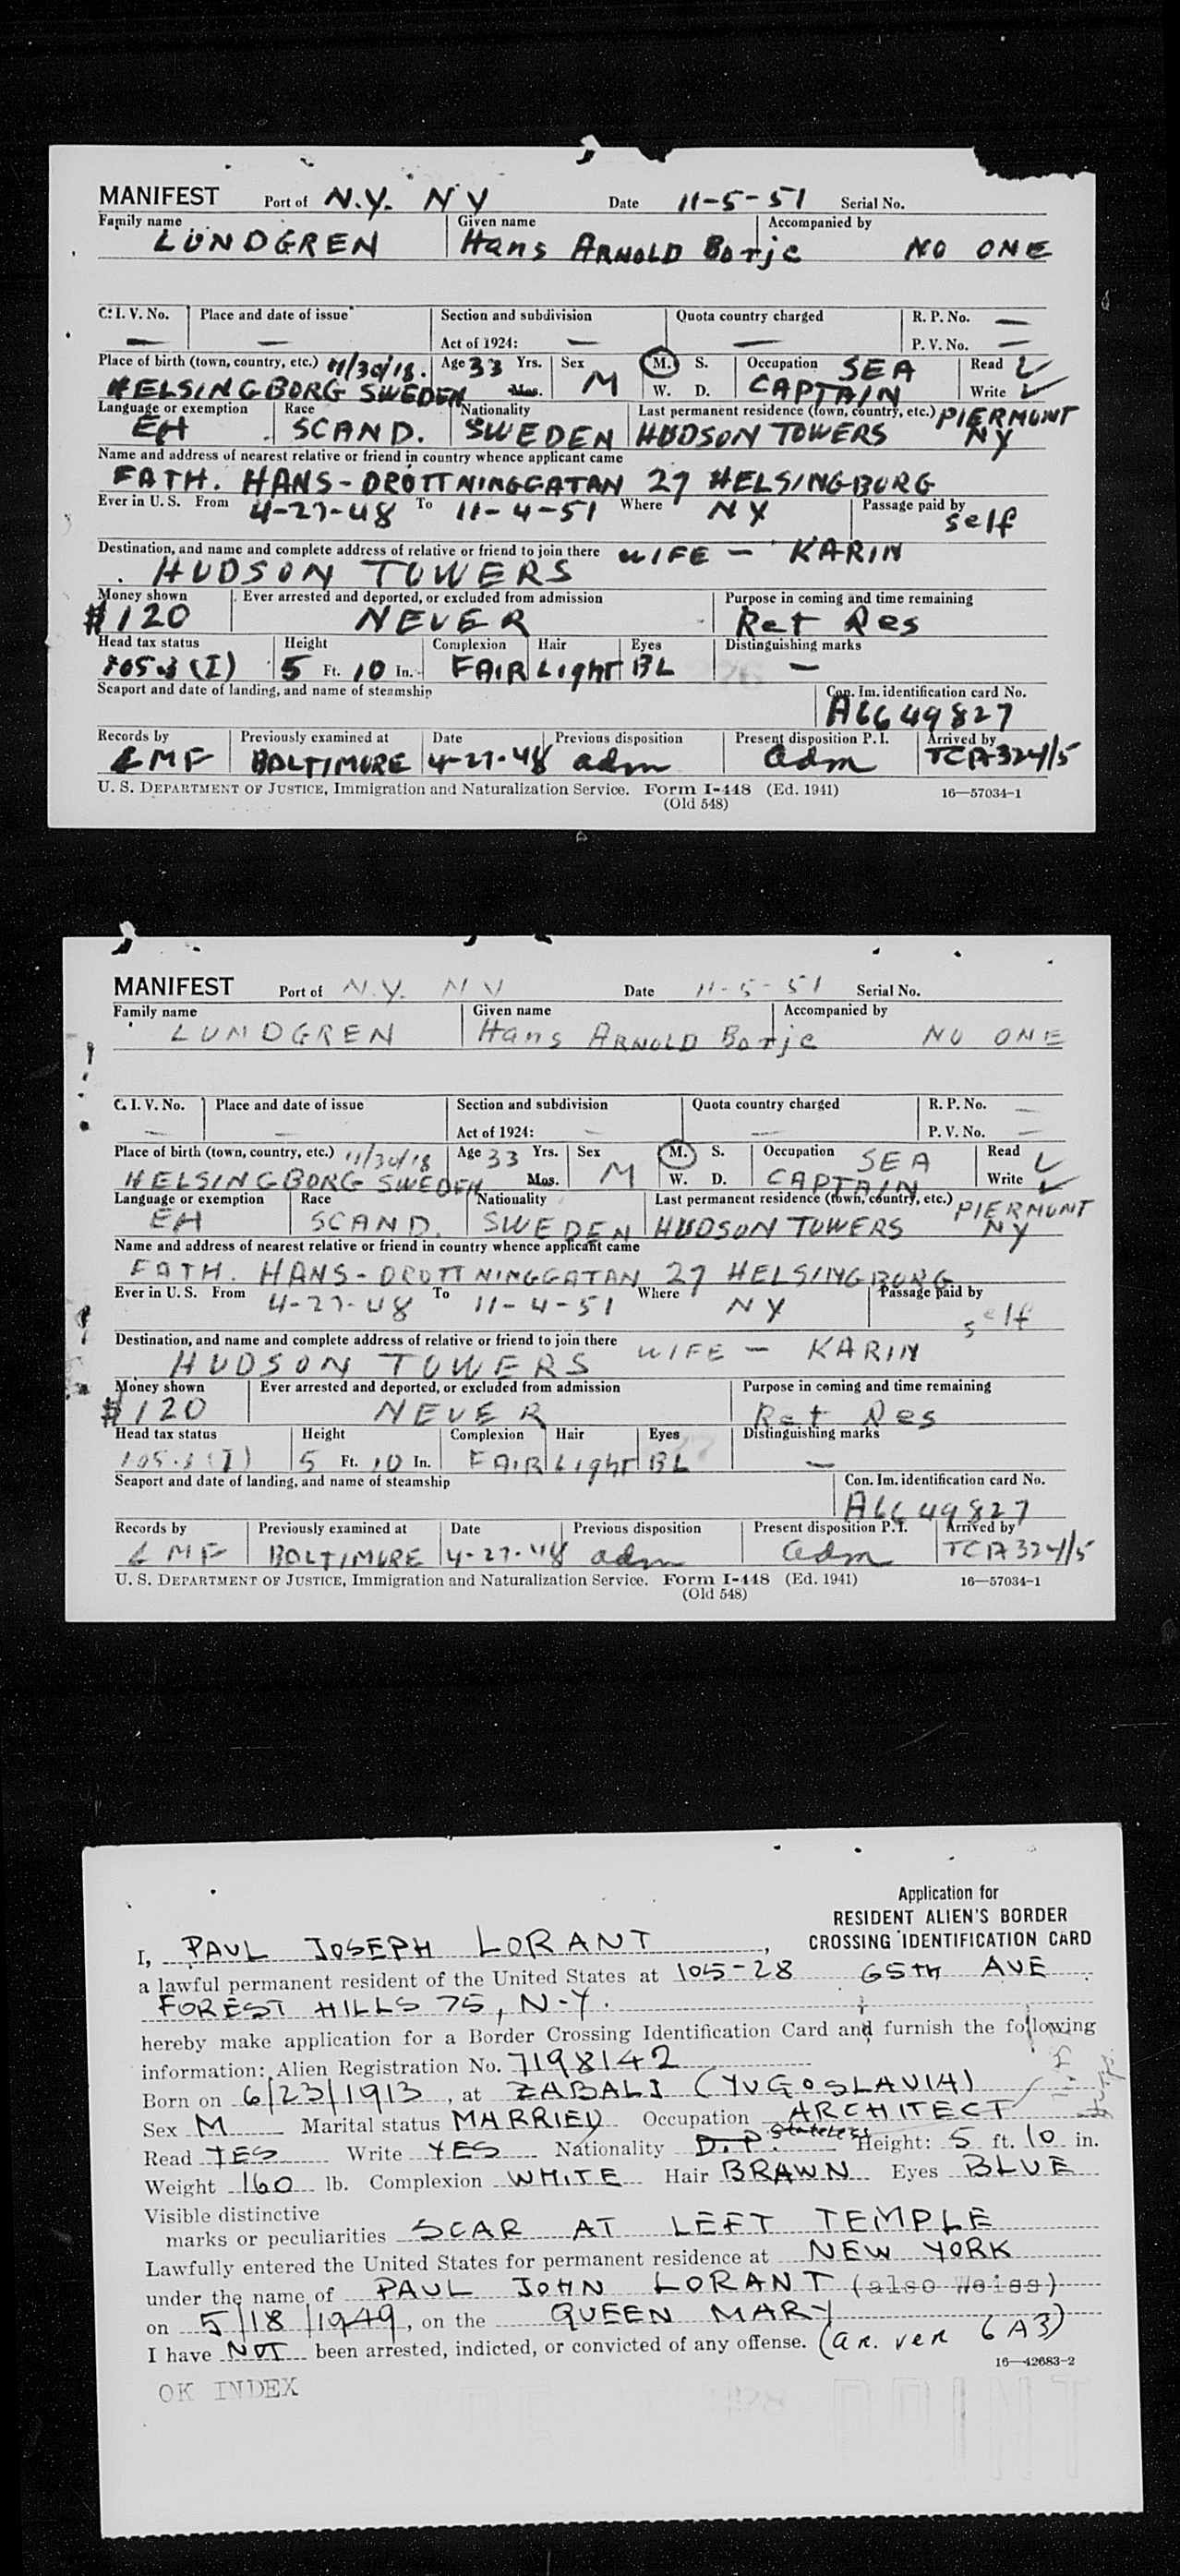 MANIFEST Port of N.Y. NY Date 11-5-51 Serial No.
Family name Given name Accompanied by
LUNDGREN Hans ARNOLD Borje NO ONE
C. I. V. No. Place and date of issue Section and subdivision Quota country charged R. P. No. —
— — Act of 1924: — — P. V. No. —
Place of birth (town, country, etc.) 11/30/18. Age 33 Yrs. Sex M. S. Occupation SEA Read ✓
HELSINGBORG SWEDEN Mos. M W. D. CAPTAIN Write ✓
Language or exemption Race Nationality Last permanent residence (town, country, etc.) PIERMONT
EH SCAND. SWEDEN HUDSON TOWERS NY
Name and address of nearest relative or friend in country whence applicant came
FATH. HANS - DROTTNINGGATAN 27 HELSINGBORG
Ever in U. S. From 4-27-48 To 11-4-51 Where NY Passage paid by self
Destination, and name and complete address of relative or friend to join there WIFE — KARIN
HUDSON TOWERS
Money shown Ever arrested and deported, or excluded from admission Purpose in coming and time remaining
$120 NEVER Ret Res
Head tax status Height Complexion Hair Eyes Distinguishing marks
105.3 (I) 5 Ft. 10 In. FAIR Light BL —
Seaport and date of landing, and name of steamship Con. Im. identification card No.
A6649827
Records by Previously examined at Date Previous disposition Present disposition P. I. Arrived by
BALTIMORE 4-27-48 adm adm TCA 324/5
U. S. DEPARTMENT OF JUSTICE, Immigration and Naturalization Service. Form I-448 (Ed. 1941) 16—57034-1
(Old 548)
MANIFEST Port of N.Y. NY Date 11-5-51 Serial No.
Family name Given name Accompanied by
LUNDGREN Hans ARNOLD Borje NO ONE
C. I. V. No. Place and date of issue Section and subdivision Quota country charged R. P. No. —
— — Act of 1924: — — P. V. No. —
Place of birth (town, country, etc.) 11/30/18 Age 33 Yrs. Sex M. S. Occupation SEA Read ✓
HELSINGBORG SWEDEN Mos. M W. D. CAPTAIN Write ✓
Language or exemption Race Nationality Last permanent residence (town, country, etc.) PIERMONT
EH SCAND. SWEDEN HUDSON TOWERS NY
Name and address of nearest relative or friend in country whence applicant came
FATH. HANS - DROTTNINGGATAN 27 HELSINGBORG
Ever in U. S. From 4-27-48 To 11-4-51 Where NY Passage paid by self
Destination, and name and complete address of relative or friend to join there WIFE — KARIN
HUDSON TOWERS
Money shown Ever arrested and deported, or excluded from admission Purpose in coming and time remaining
$120 NEVER Ret Res
Head tax status Height Complexion Hair Eyes Distinguishing marks
105.3 (I) 5 Ft. 10 In. FAIR Light BL —
Seaport and date of landing, and name of steamship Con. Im. identification card No.
A6649827
Records by Previously examined at Date Previous disposition Present disposition P. I. Arrived by
BALTIMORE 4-27-48 adm adm TCA 324/5
U. S. DEPARTMENT OF JUSTICE, Immigration and Naturalization Service. Form I-448 (Ed. 1941) 16—57034-1
(Old 548)
Application for
RESIDENT ALIEN'S BORDER
CROSSING IDENTIFICATION CARD
I, PAUL JOSEPH LORANT,
a lawful permanent resident of the United States at 105-28 65TH AVE
FOREST HILLS 75, N.Y.
hereby make application for a Border Crossing Identification Card and furnish the following
information: Alien Registration No. 7198142
Born on 6/23/1913, at ZABALJ (YUGOSLAVIA)
Sex M Marital status MARRIED Occupation ARCHITECT
Read YES Write YES Nationality D.P. Stateless Height: 5 ft. 10 in.
Weight 160 lb. Complexion WHITE Hair BRAWN Eyes BLUE
Visible distinctive
marks or peculiarities SCAR AT LEFT TEMPLE
Lawfully entered the United States for permanent residence at NEW YORK
under the name of PAUL JOHN LORANT (also Weiss)
on 5/18/1949, on the QUEEN MARY
I have NOT been arrested, indicted, or convicted of any offense. (ar. ver 6A3)
16—42683-2
OK INDEX